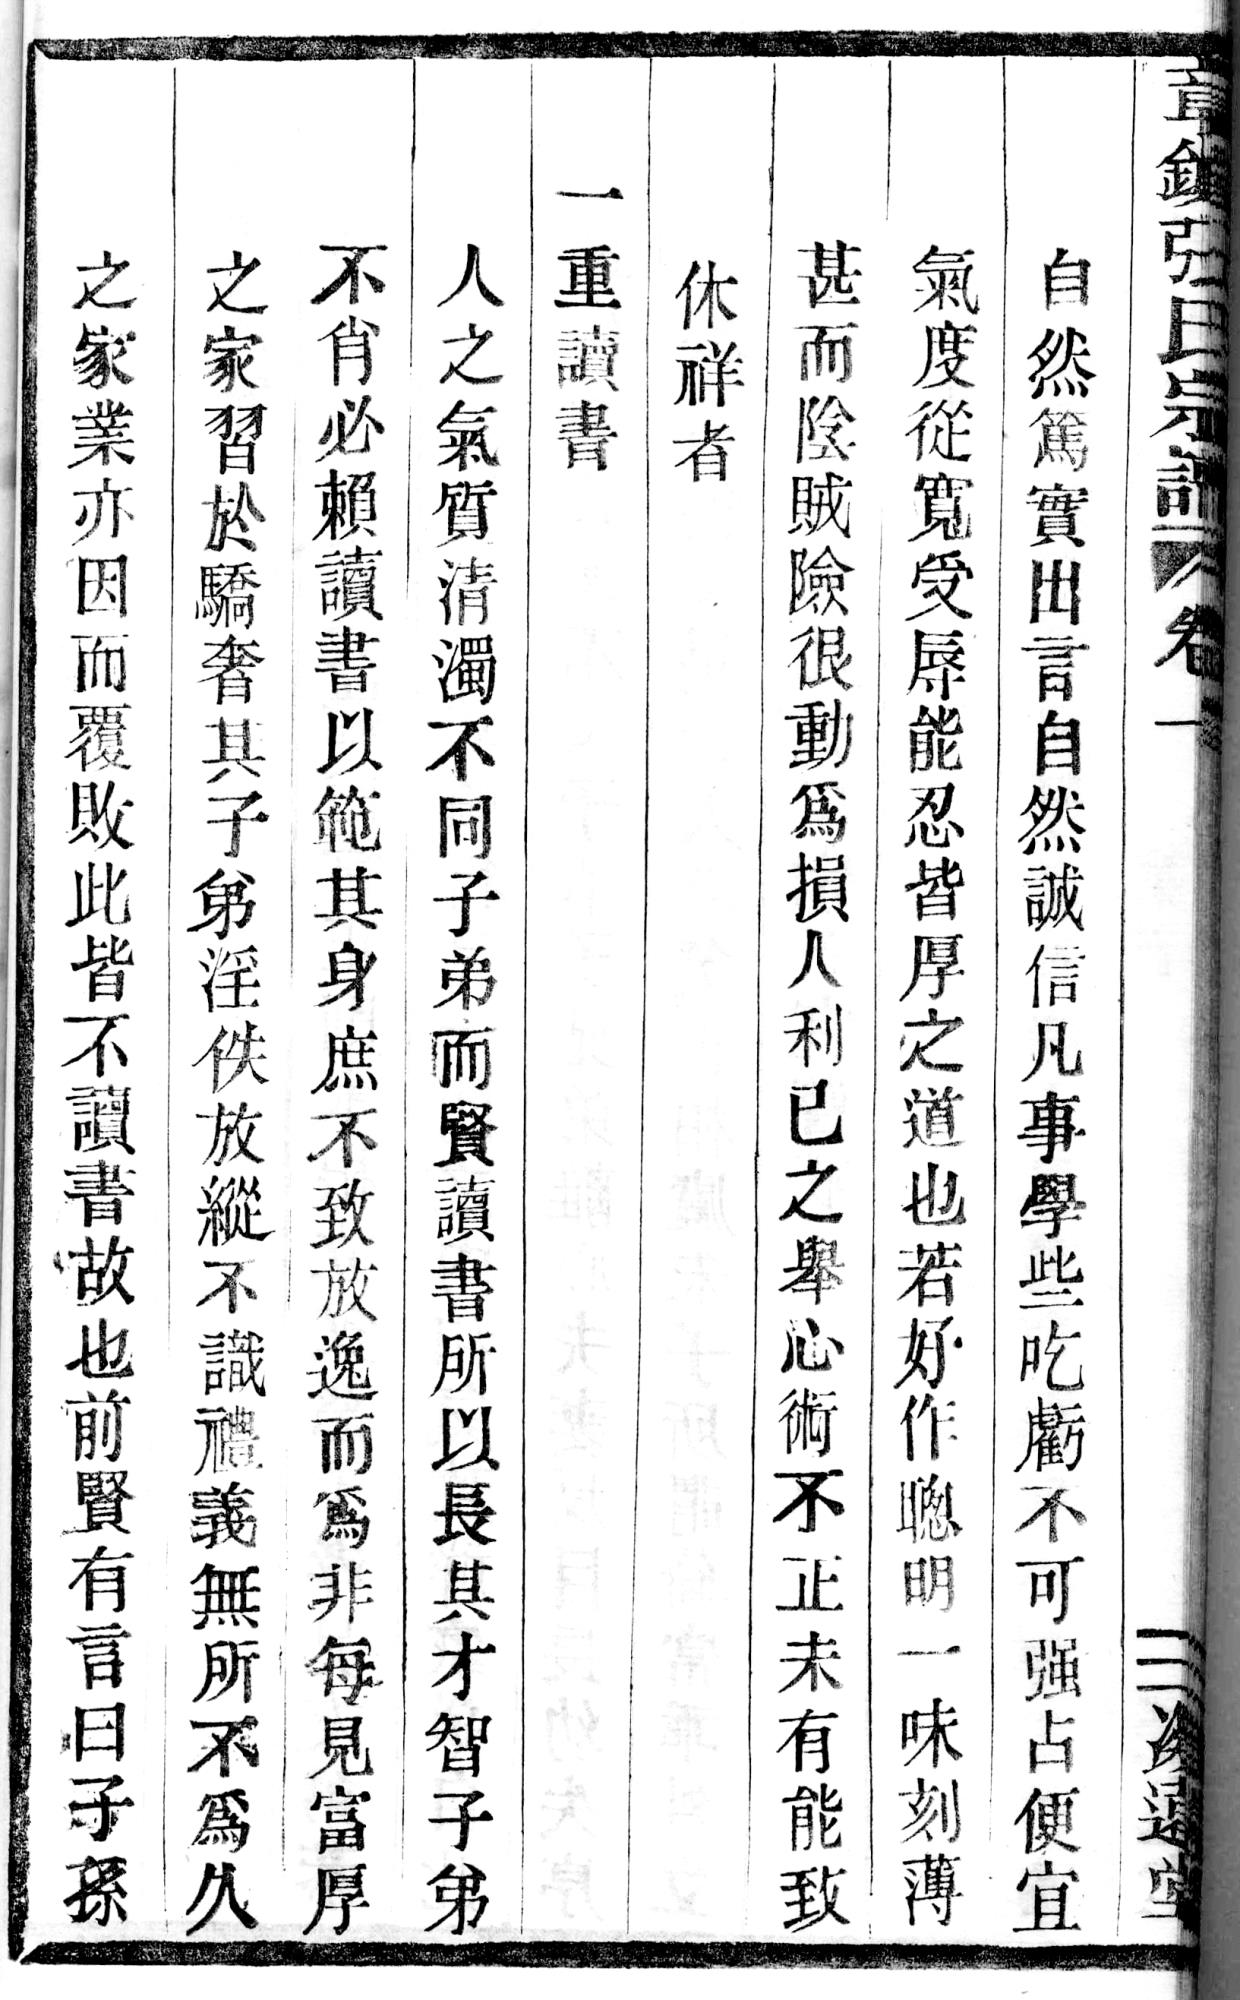 章鎮張氏宗譜 卷一 三 追遠堂
自然篤實出言自然誠信凡事學些吃虧不可强占便宜
氣度從寬受辱能忍皆厚之道也若好作聰明一味刻薄
甚而陰賊險很動爲損人利已之舉心術不正未有能致
休祥者
一重讀書
人之氣質清濁不同子弟而賢讀書所以長其才智子弟
不肖必賴讀書以範其身庶不致放逸而爲非每見富厚
之家習於驕奢其子弟淫佚放縱不識禮義無所不爲久
之家業亦因而覆敗此皆不讀書故也前賢有言曰子孫